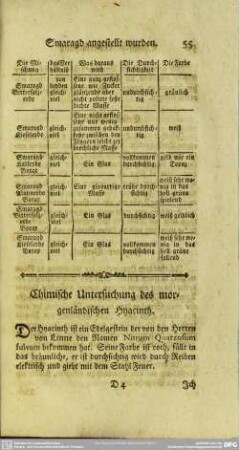 Smaragd angestellt wurden. 55
Die Mi-
schung
das Ver-
hältniß
Was daraus
wird
Die Durch-
sichtigkeit
Die Farbe
Smaragd
gleich-
viel
von
beyden
Eine ganz geflos-
sene wie Zucker
glänzende aber
nicht politte sehr
dichte Masse
undurchsich-
tig
grünlich
Smaragd
Kieselerde
gleich-
viel
Eine nicht geflos-
sene nur wenig
undurchsich-
tig
weiß
Smaragd
Kieselerde
Borax
gleich-
viel
Ein Glas
vollkommen
durchsichtig
gelb wie ein
Topaz
Smaragd
Alaunerde
Borax
gleich-
viel
Eine glasartige
Masse
trübe durch-
sichtig
Smaragd
Bittersalz-
erde
Borax
gleich-
viel
Ein Glas
durchsichtig
weiß grünlich
Smaragd
Borax
gleich-
viel
Ein Glas
vollkommen
durchsichtig
Chimische Untersuchung des mor-
genländischen Hyacinth.
Der Hyacinth ist ein Edelgestein der von den Herren
von Linne den Namen Nitrum Quarzosum
fulvum bekommen hat. Seine Farbe ist roth, fällt in
das bräunliche, er ist durchsichtig wird durch Reiben
elektrisch und giebt mit dem Stahl Feuer.
D 4 Ich